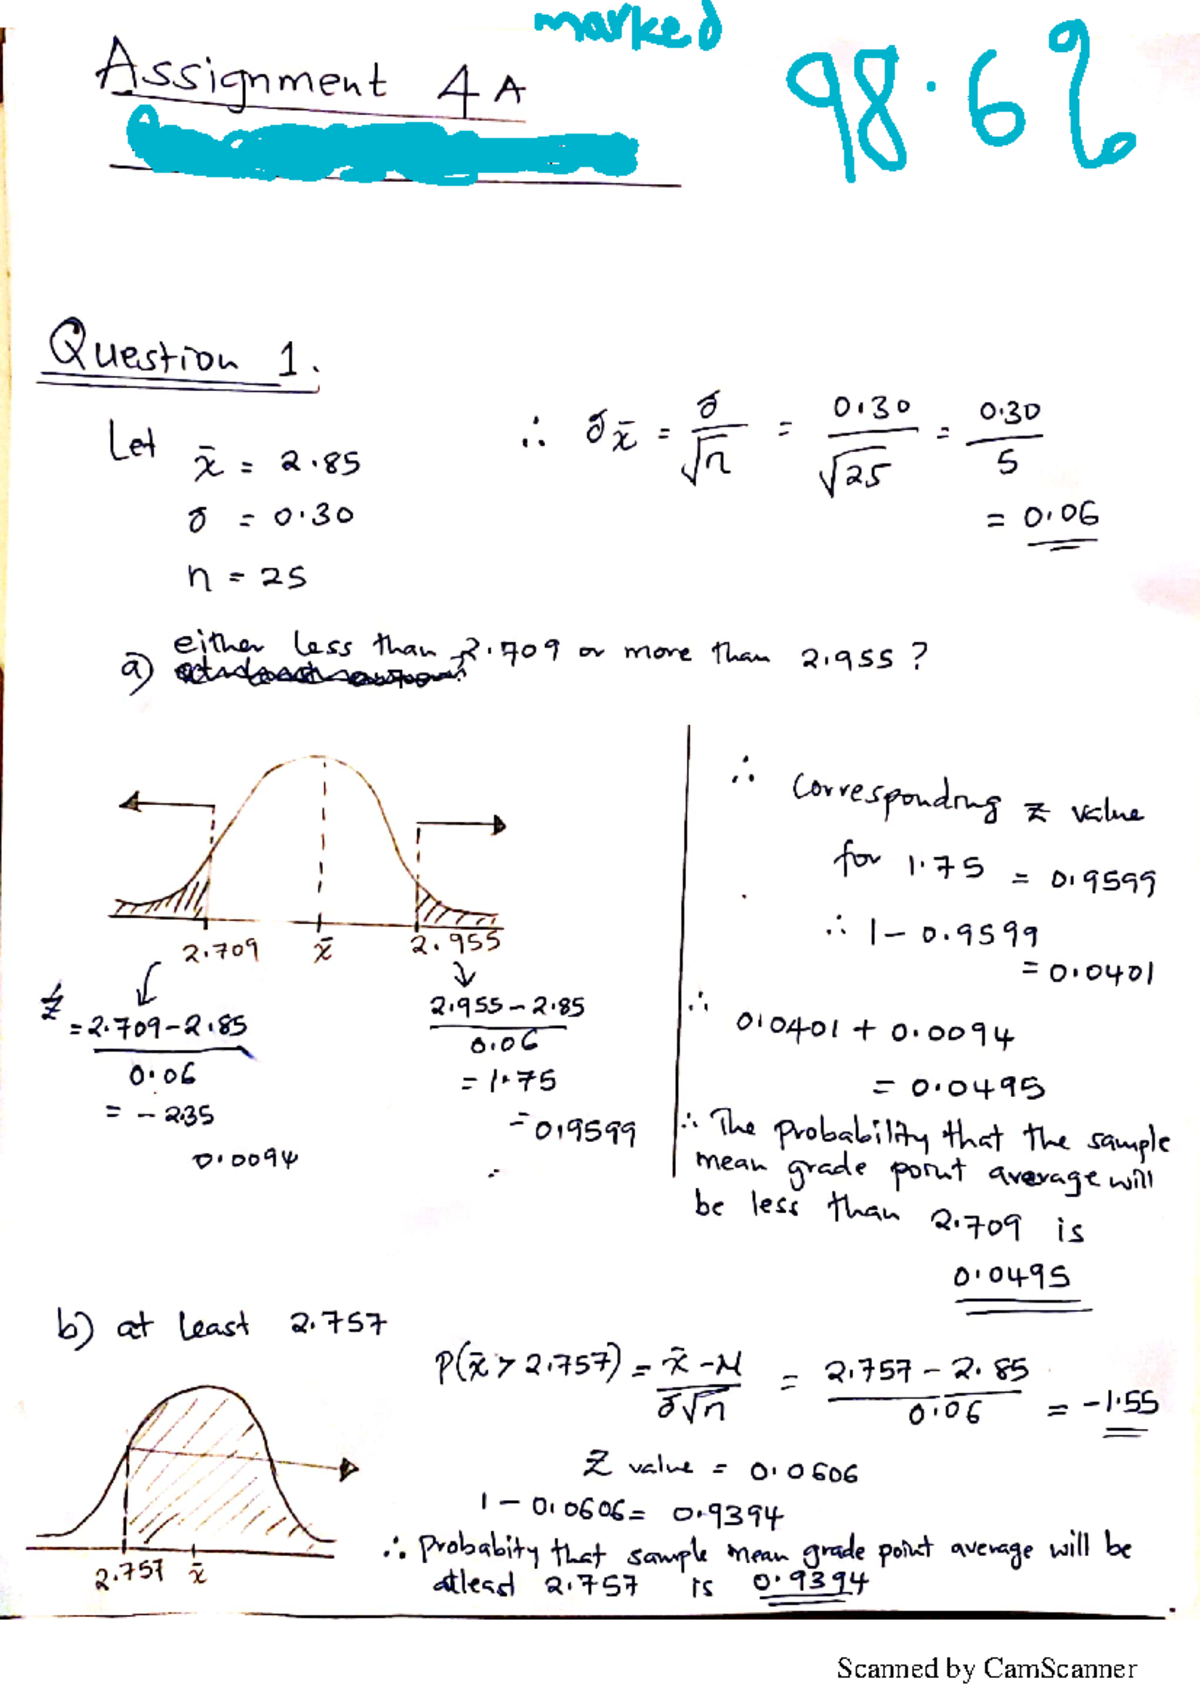 marked
98.6%
Assignment 4A
Question 1.
Let x̄ = 2.85
σ = 0.30
n = 25
∴ σx̄ = σ/√n = 0.30/√25 = 0.30/5
= 0.06
a) either less than 2.709 or more than 2.955 ?
2.709 x̄ 2.955
Z = 2.709-2.85/0.06
= -2.35
0.0094
2.955-2.85/0.06
= 1.75
= 0.9599
∴ Corresponding z value
for 1.75 = 0.9599
∴ 1 - 0.9599
= 0.0401
∴ 0.0401 + 0.0094
= 0.0495
∴ The probability that the sample
mean grade point average will
be less than 2.709 is
0.0495
b) at least 2.757
P(x̄ > 2.757) = x̄-M/σ√n = 2.757-2.85/0.06 = -1.55
Z value = 0.0606
1 - 0.0606 = 0.9394
∴ probabity that sample mean grade point average will be
atleast 2.757 is 0.9394
2.757 x̄
Scanned by CamScanner